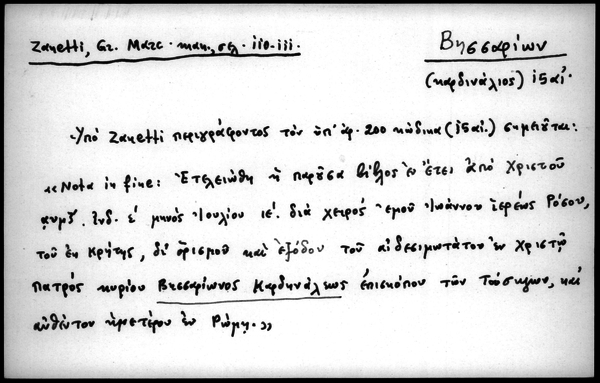 Zanetti, Gr. Marc. man., σελ. 110-111.
Βησσαρίων
(καρδινάλιος) 15 αἰ.
Ὑπό Zanetti περιγράφοντος τόν ὑπ' ἀρ. 200 κώδικα (15 αἰ.) σημειοῦται:
«Nota in fine: Ἐτελειώθη ἡ παροῦσα βίβλος ἐν ἔτει ἀπό Χριστοῦ
Ἰνδ. ε΄ μηνός Ἰουλίου ιε΄. διά χειρός ἐμοῦ Ἰωάννου ἱερέως Ρόσου,
τοῦ ἐκ Κρήτης, δι' ὁρισμοῦ καί ἐξόδου τοῦ αἰδεσιμωτάτου ἐν Χριστῷ
πατρός κυρίου Βησσαρίωνος Καρδηνάλεως ἐπισκόπου τῶν Τούσκλων, καί
αὐθέντου ἡμετέρου ἐν Ρώμῃ.»